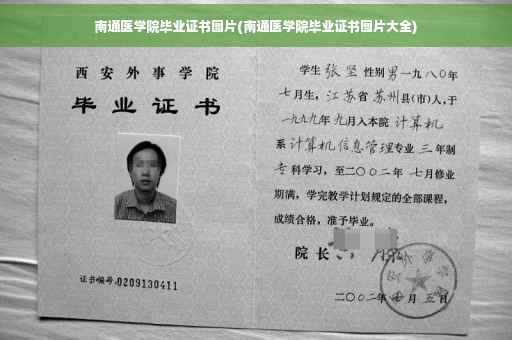 南通医学院毕业证书图片(南通医学院毕业证书图片大全)
西安外事学院
毕业证书
证书编号:0209130411
学生 张坚 性别 男 一九八〇年
七月生，江苏省 苏州县(市)人，于
一九九九年九月入本院 计算机
系 计算机信息管理专业 三 年制
专科学习，至二〇〇二年 七月修业
期满，学完教学计划规定的全部课程，
成绩合格，准予毕业。
院长
二〇〇二年 月五日